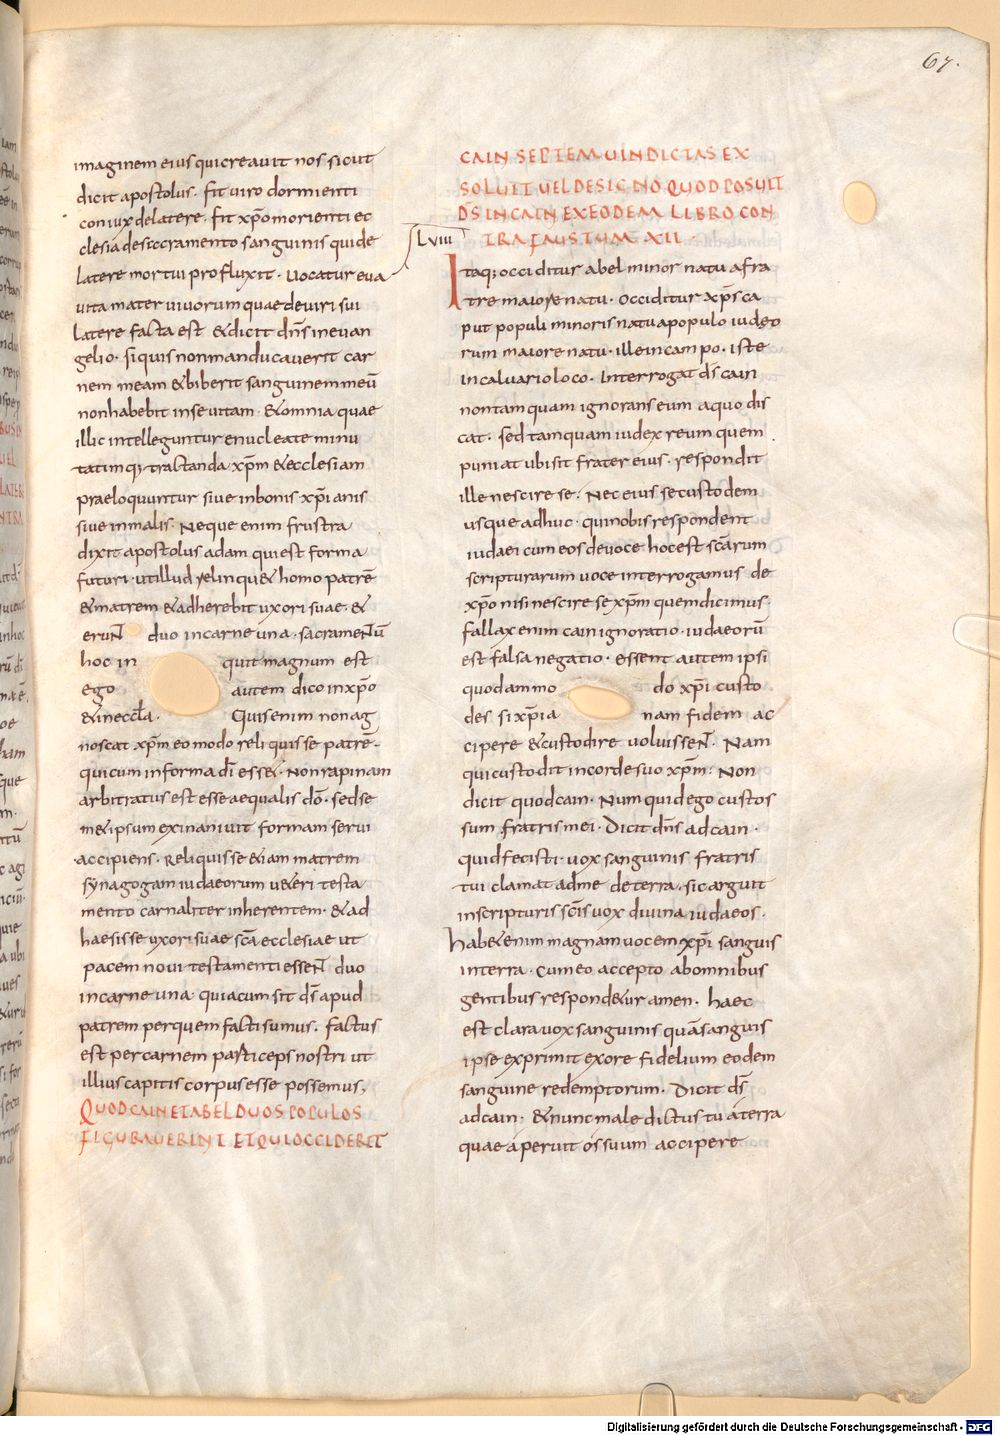 67.
imaginem eius qui creauit nos sicut
dicit apostolus. fit uiro dormienti
coniux de latere. fit xp̄o morienti ec
clesia de sacramento sanguinis qui de
latere mortui profluxit. uocatur eua
uita mater uiuorum quae de uiri sui
latere facta est & dicit dn̄s in euan
gelio. si quis non manducauerit car
nem meam & biberit sanguinem meū
non habebit in se uitam. & omnia quae
illic intelleguntur enucleate minu
tatimq; tractanda xp̄m & ecclesiam
praeloquuntur siue in bonis xp̄ianis
siue in malis. Neque enim frustra
dixit apostolus adam qui est forma
futuri. ut illud relinqu& homo patrē
& matrem & adherebit uxori suae. &
erunt duo in carne una. sacramentū
hoc in quit magnum est
ego autem dico in xp̄o
& in eccl̄a. Quis enim non ag
noscat xp̄m eo modo reliquisse patrē.
qui cum in forma dī ess&. Non rapinam
arbitratus est esse aequalis dō. sed se
m& ipsum exinaniuit formam serui
accipiens. Reliquisse & iam matrem
synagogam iudaeorum u&eri testa
mento carnaliter inherentem. & ad
haesisse uxori suae scā ecclesiae ut
pacem noui testamenti essent duo
in carne una quia cum sit ds̄ apud
patrem per quem facti sumus. factus
est per carnem particeps nostri ut
illius capitis corpus esse possemus.
QUOD CAIN ET ABEL DUOS POPULOS
FIGURAUERINT ET QUI OCCIDERET
CAIN SEPTEM UINDICTAS EX
SOLUIT UEL DE SIGNO QUOD POSUIT
DS̄ IN CAIN EX EODEM LIBRO CON
TRA FAUSTUM XII.
LVIII
Itaq; occiditur abel minor natu a fra
tre maiore natu. occiditur xp̄s ca
put populi minoris natu a populo iudęo
rum maiore natu. ille in campo. iste
in caluario loco. Interrogat ds̄ cain
non tamquam ignorans eum a quo dis
cat. sed tamquam iudex reum quem
puniat ubi sit frater eius. respondit
ille nescire se. Nec eius se custodem
usque adhuc. qui nobis respondent
iudaei cum eos de uoce hoc est scārum
scripturarum uoce interrogamus de
xp̄o nisi nescire se xp̄m quem dicimus.
fallax enim cain ignoratio. iudaeorū
est falsa negatio. essent autem ipsi
quodammodo xp̄i custo
des si xp̄ianam fidem ac
cipere & custodire uoluissent. Nam
qui custodit in corde suo xp̄m. Non
dicit quod cain. Numquid ego custos
sum fratris mei. Dicit dn̄s ad cain.
quid fecisti. uox sanguinis fratris
tui clamat ad me de terra. sic arguit
in scripturis scīs uox diuina iudaeos.
hab& enim magnam uocem xp̄i sanguis
in terra. cum eo accepto ab omnibus
gentibus respond&ur amen. haec
est clara uox sanguinis quā sanguis
ipse exprimit ex ore fidelium eodem
sanguine redemptorum. Dicit ds̄
ad cain. & nunc maledictus tu a terra
quae aperuit os suum accipere
Digitalisierung gefördert durch die Deutsche Forschungsgemeinschaft - DFG